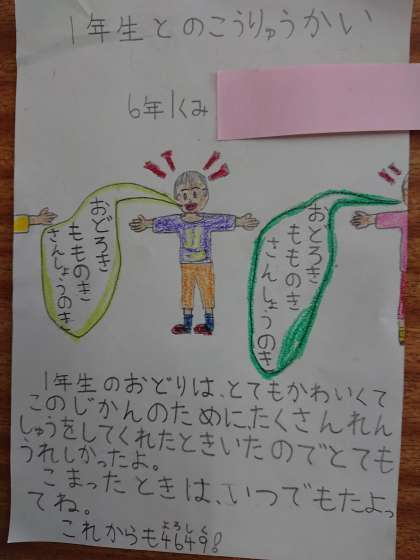 1年生とのこうりゅうかい
6年1くみ
おどろき
もものき
さんしょうのき
おどろき
もものき
さんしょうのき
1年生のおどりは、とてもかわいくて
このじかんのために、たくさんれん
しゅうをしてくれたときいたのでとても
うれしかったよ。
こまったときは、いつでもたよっ
てね。
これからも4649!
よろしく